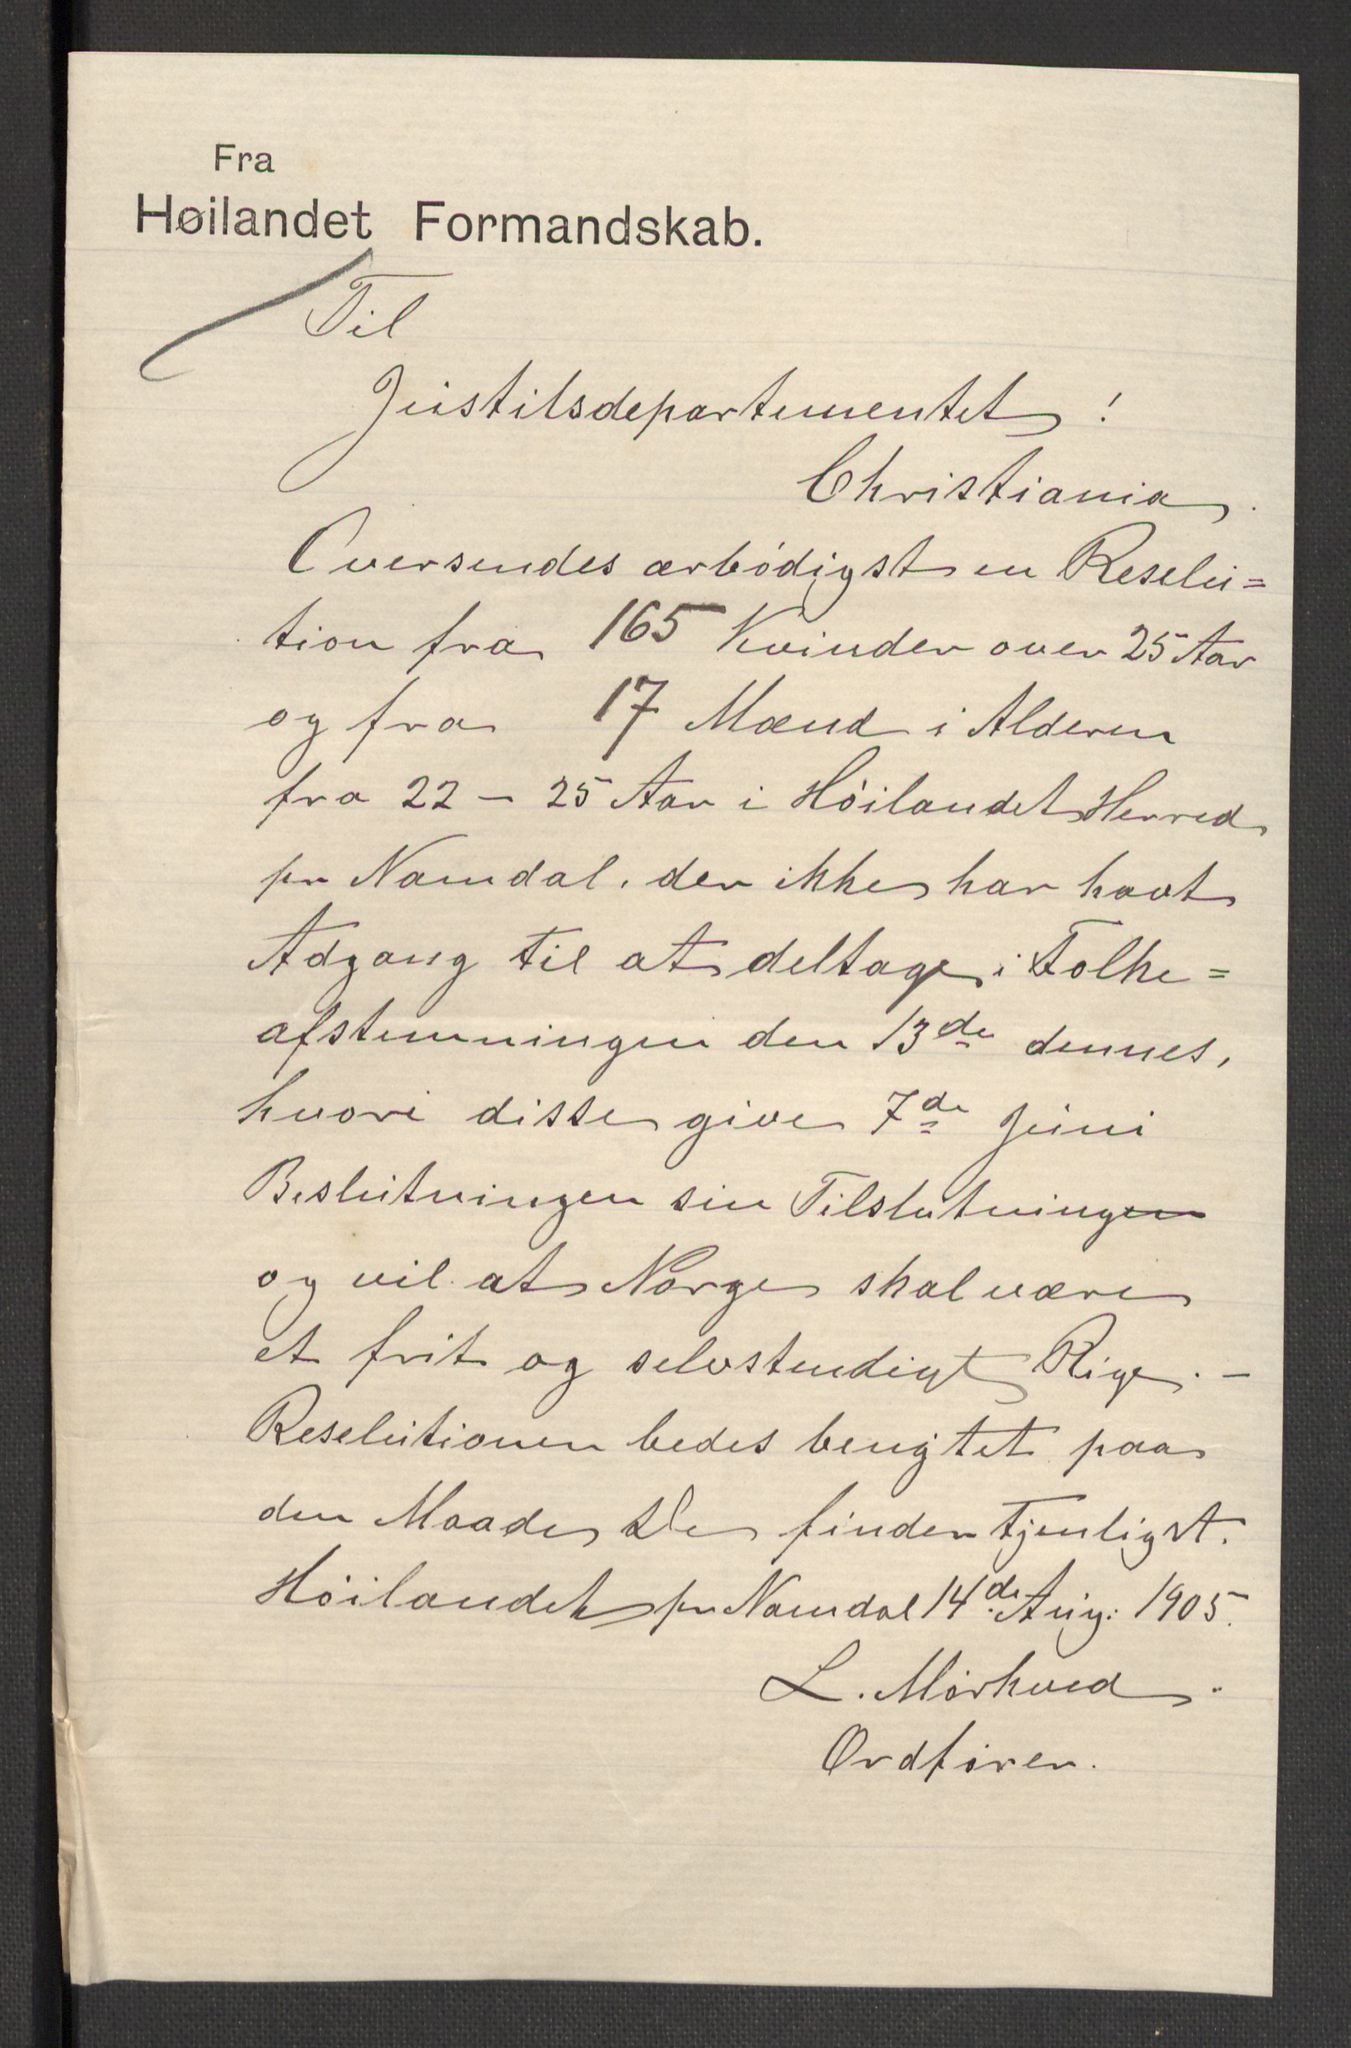 Fra
Høilandet Formandskab.
Til
Justitsdepartementet!
Christiania.
Oversendes ærbødigst en Resolu=
tion fra 165 Kvinder over 25 Aar
og fra 17 Mænd i Alderen
fra 22 – 25 Aar i Höilandet Herred
pr Namdal, der ikke har havt
Adgang til at deltage i Folke=
afstemningen den 13de dennes,
hvori disse give 7de Juni
Beslutningen sin Tilslutningen
og vil at Norge skal være
et frit og selvstendigt Rige. –
Resolutionen bedes benyttet paa
den Maade De finder tjenligst.
Höilandet pr Namdal 14de Aug: 1905.
L. Mörkved.
Ordförer.